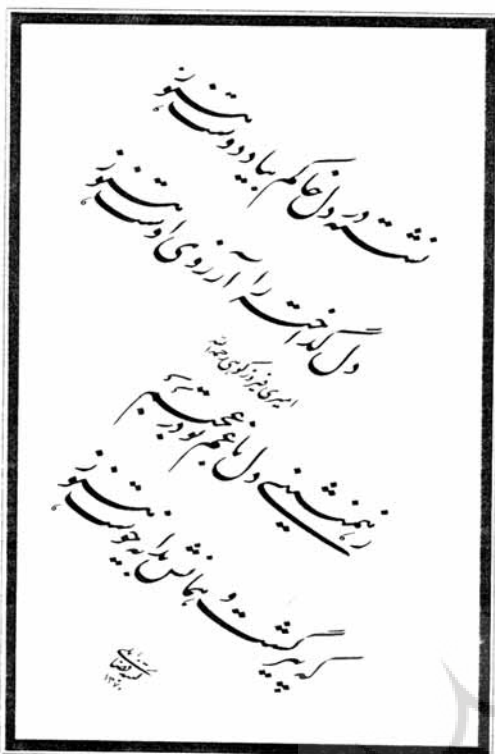 نشسته در دل خاکم بیاد دوست هنوز
دل گداخته را آرزوی اوست هنوز
امیری فیروزکوهی رحمه الله
ز همنشینی دل با غم تو در عجبم
که پیر گشت و همانش هنوز
۱۳۷۰